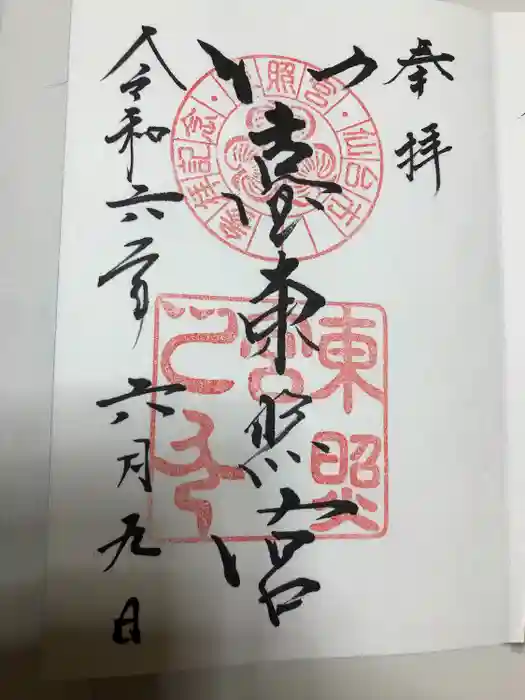 奉拝
仙臺東照宮
令和六年六月九日
東照宮・仙台市・参拝記念
東照宮之印